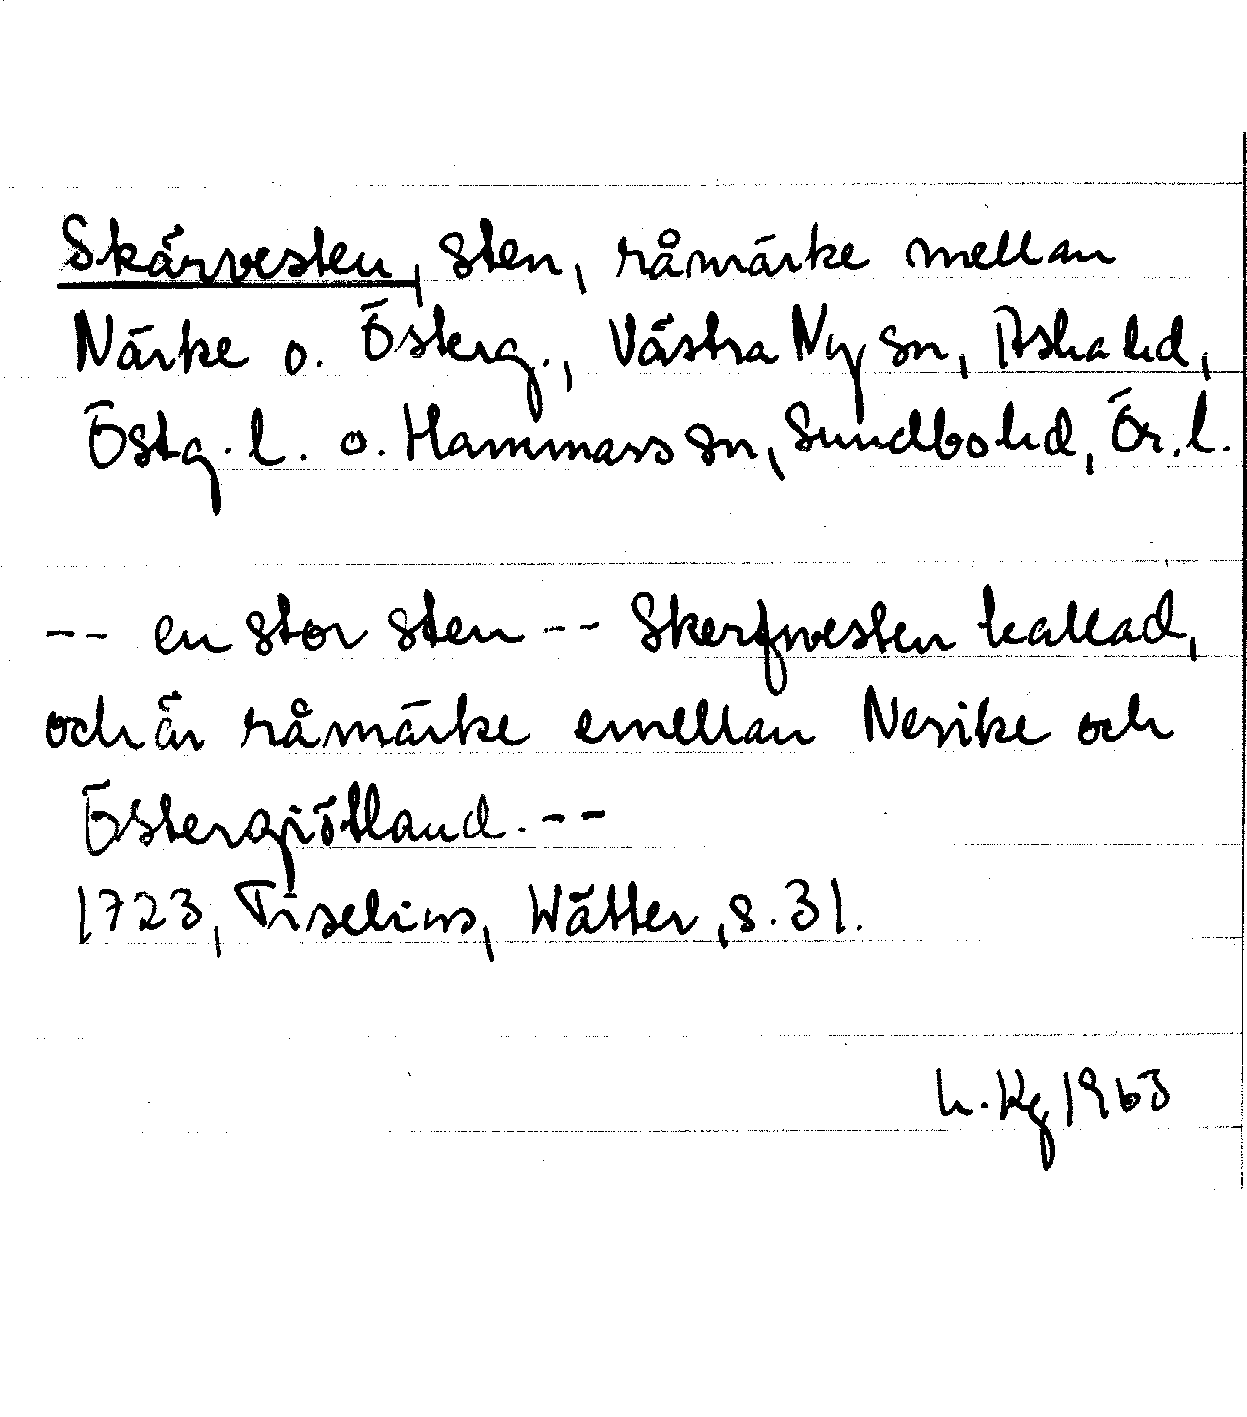 Skärvesten, sten, råmärke mellan
Närke o. Österg., Västra Ny sn, Aska hd,
Östg. l. o. Hammars sn, Sundbo hd, Ör. l.
-- en stor sten -- Skerfwesten kallad,
och är råmärke emellan Nerike och
Östergiötland. --
1723, Tiselius, Wätter, s. 31.
h. Kg 1963